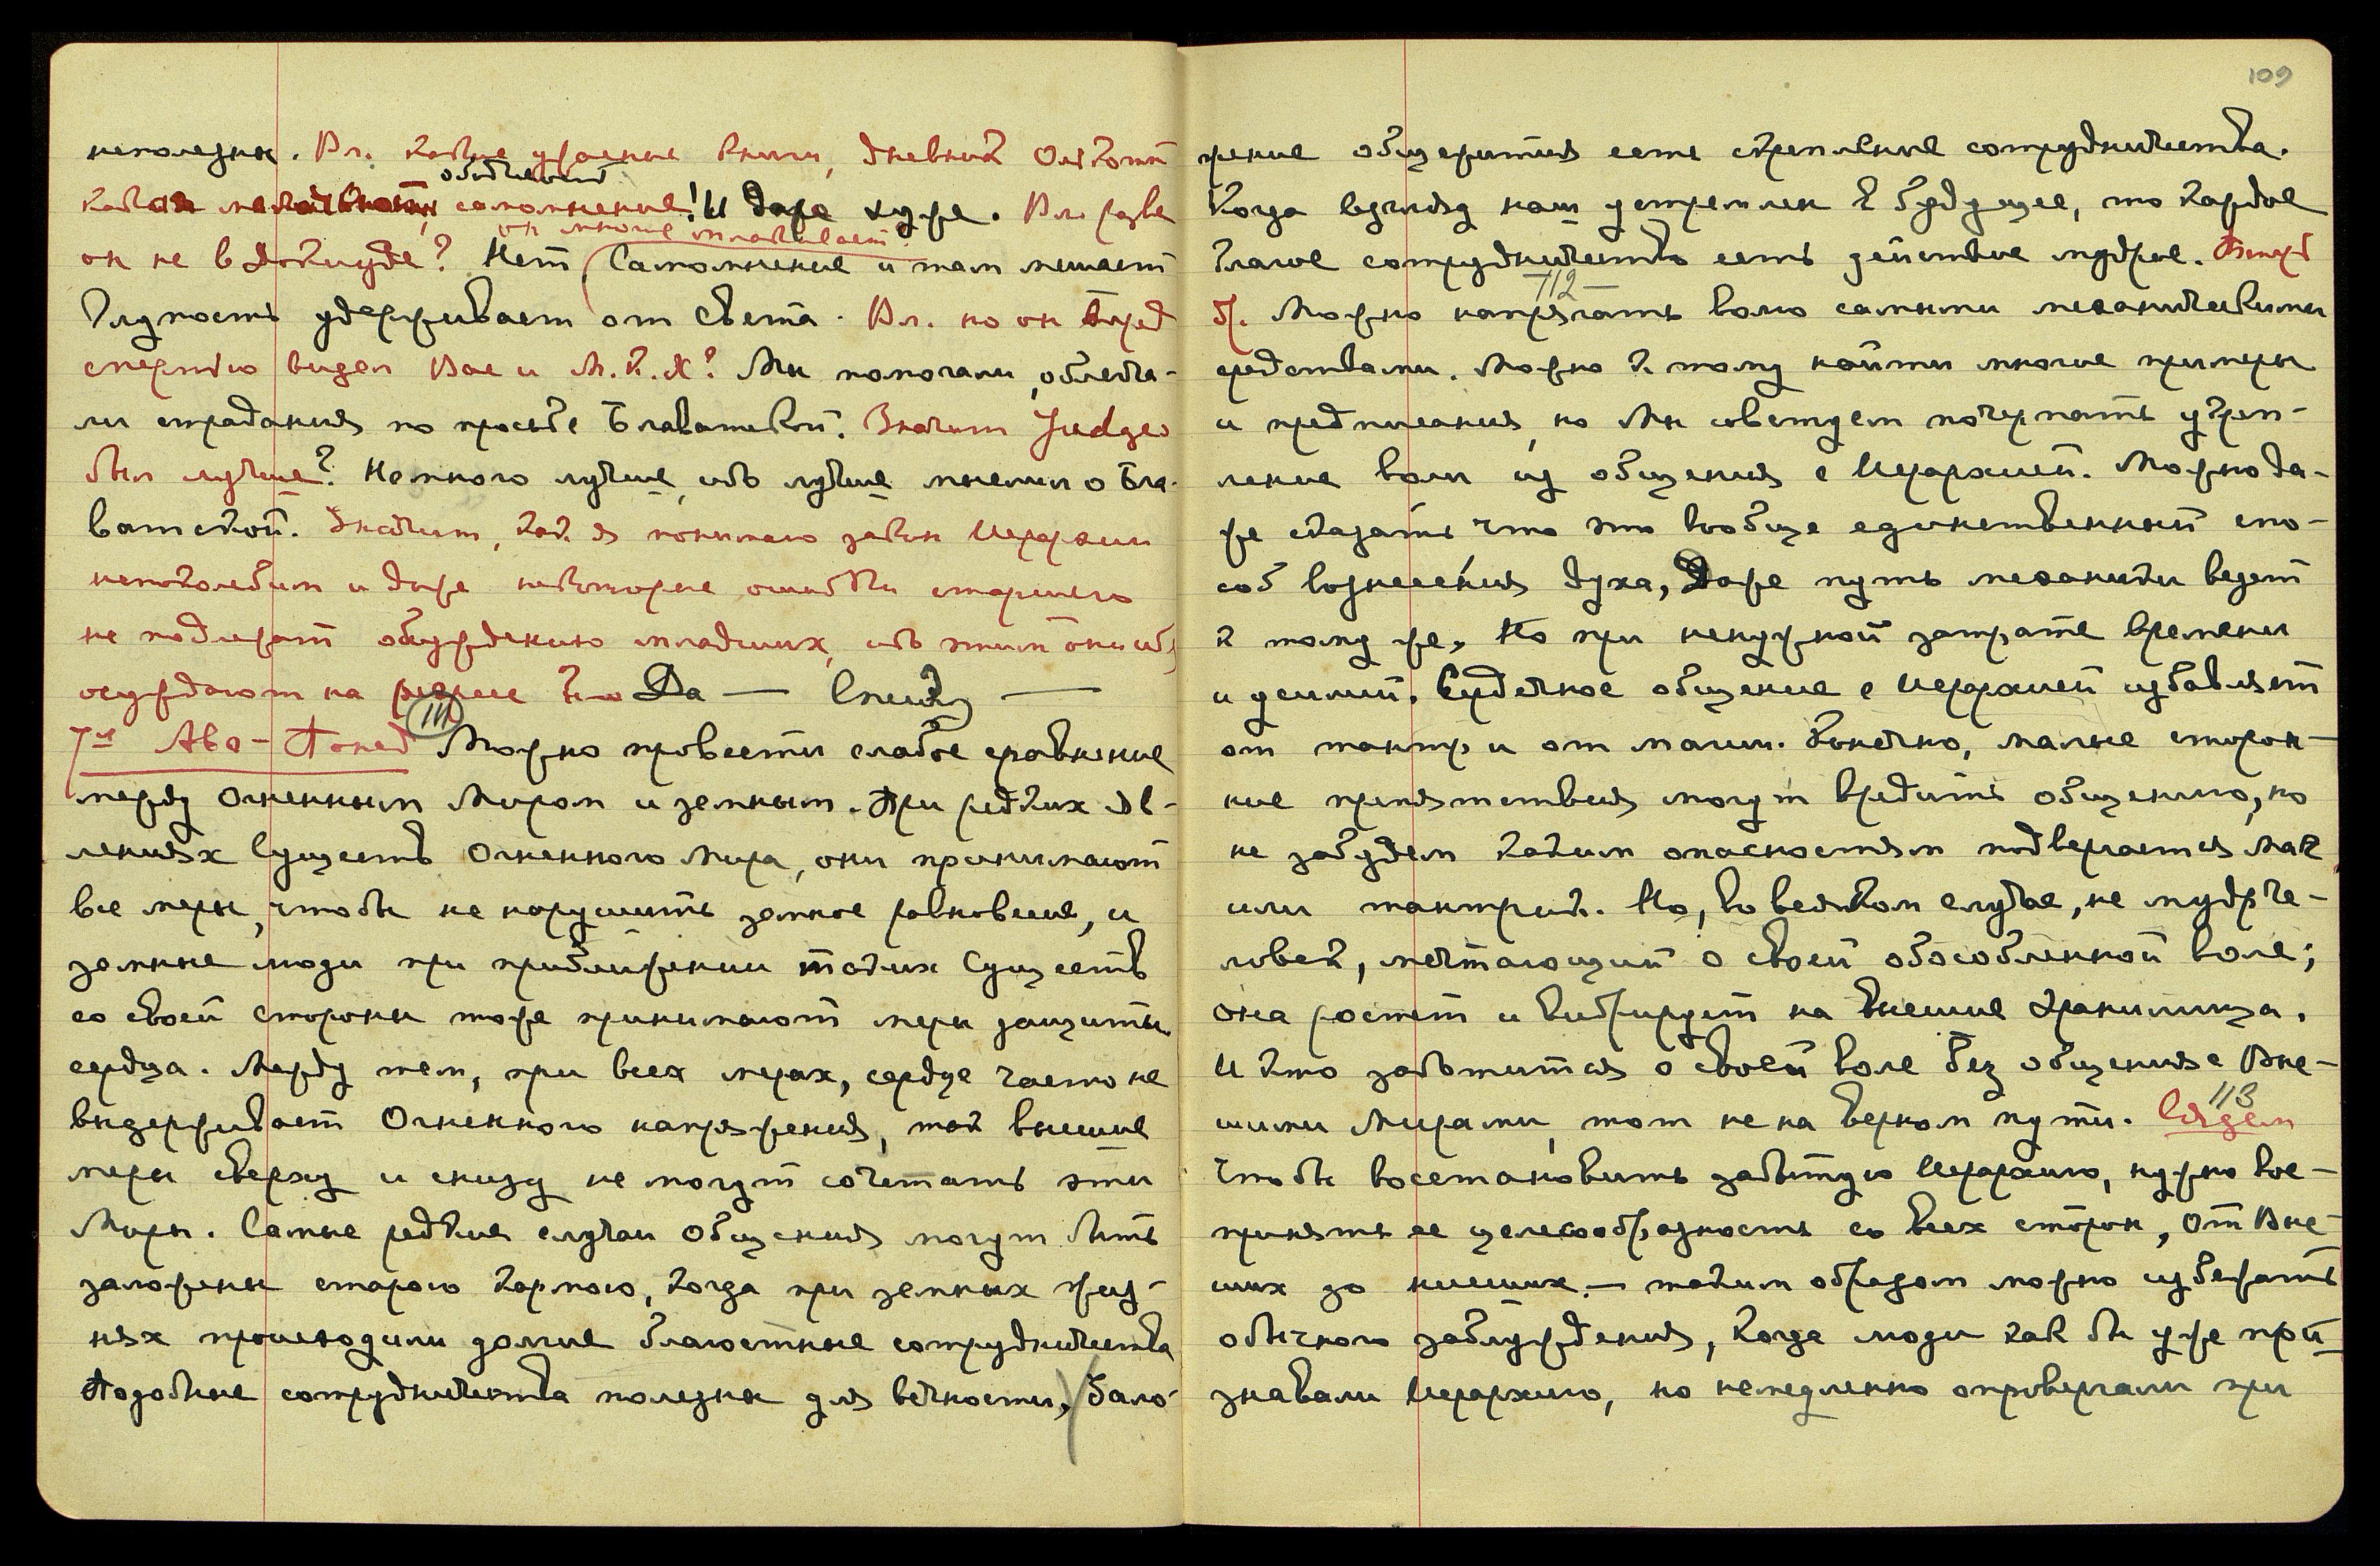 неполезны. Вл. какие ужасные книги, дневник Олькотт
обличает
какая самомнение! И даже хуже. Вл. разве
он многие оплакивает
он не в Девачане? Нет, Самомнение и там мешает
Глупость удерживает от Света. Вл. но он перед
смертью видел Вас и М.К.Х? Мы помогали, облегча-
ли страдания по просьбе Блаватской. Значит Judge
был лучше? Немного лучше, ибо лучше мнения о Бла-
ватской. Значит, как я понимаю закон Иерархии
непоколебим и даже некоторые ошибки старшего
не подлежат обсуждению младших, ибо этим они себя
осуждают на Да — Спешу —
7го Авг - Понед III Можно провести слабое сравнение
между Огненным Миром и земным. При редких яв-
лениях Существ Огненного Мира, они принимают
все меры, чтобы не нарушить земное равновесие, и
земные люди при приближении таких Существ
со своей стороны тоже принимают меры защиты
сердца. Между тем, при всех мерах, сердце часто не
выдерживает Огненного напряжения, так внешние
меры сверху и снизу не могут сочетать эти
Миры. Самые редкие случаи Общения могут быть
заложены старою кармою, когда при земных жиз-
нях происходили долгие благостные сотрудничества
Подобные сотрудничества полезны для вечности, Зало-
109
жение общежития есть скрепление сотрудничества.
Когда взгляд наш устремлен в будущее, то каждое
благое сотрудничество есть действие мудрое. Втор
112
8. Можно напрягать волю самыми механическими
средствами. Можно к тому найти многие примеры
и предписания, но Мы советуем почерпать укреп-
ление воли из общения с Иерархией. Можно да-
же сказать что это вообще единственный спо-
соб вознесения духа, Даже путь механики ведет
к тому же, Но при ненужной затрате времени
и усилий. Сердечное общение с Иерархией избавляет
от тантр и от магии. Конечно, малые сторон-
ние препятствия могут вредить общению, но
не забудем каким опасностям подвергается маг
или тантрик. Но, во всяком случае, не мудр че-
ловек, мечтающий о своей обособленной воле;
она растет и вибрирует на высшие хранилища.
И кто заботится о своей воле без общения с Выс-
шими Мирами, тот не на верном пути. Среда
113
Чтобы восстановить забытую Иерархию, нужно вос-
принять ее целесообразность со всех сторон, От Выс-
ших до низших — таким образом можно избежать
обычного заблуждения, когда люди как бы уже при-
знавали Иерархию, но немедленно опровергали при